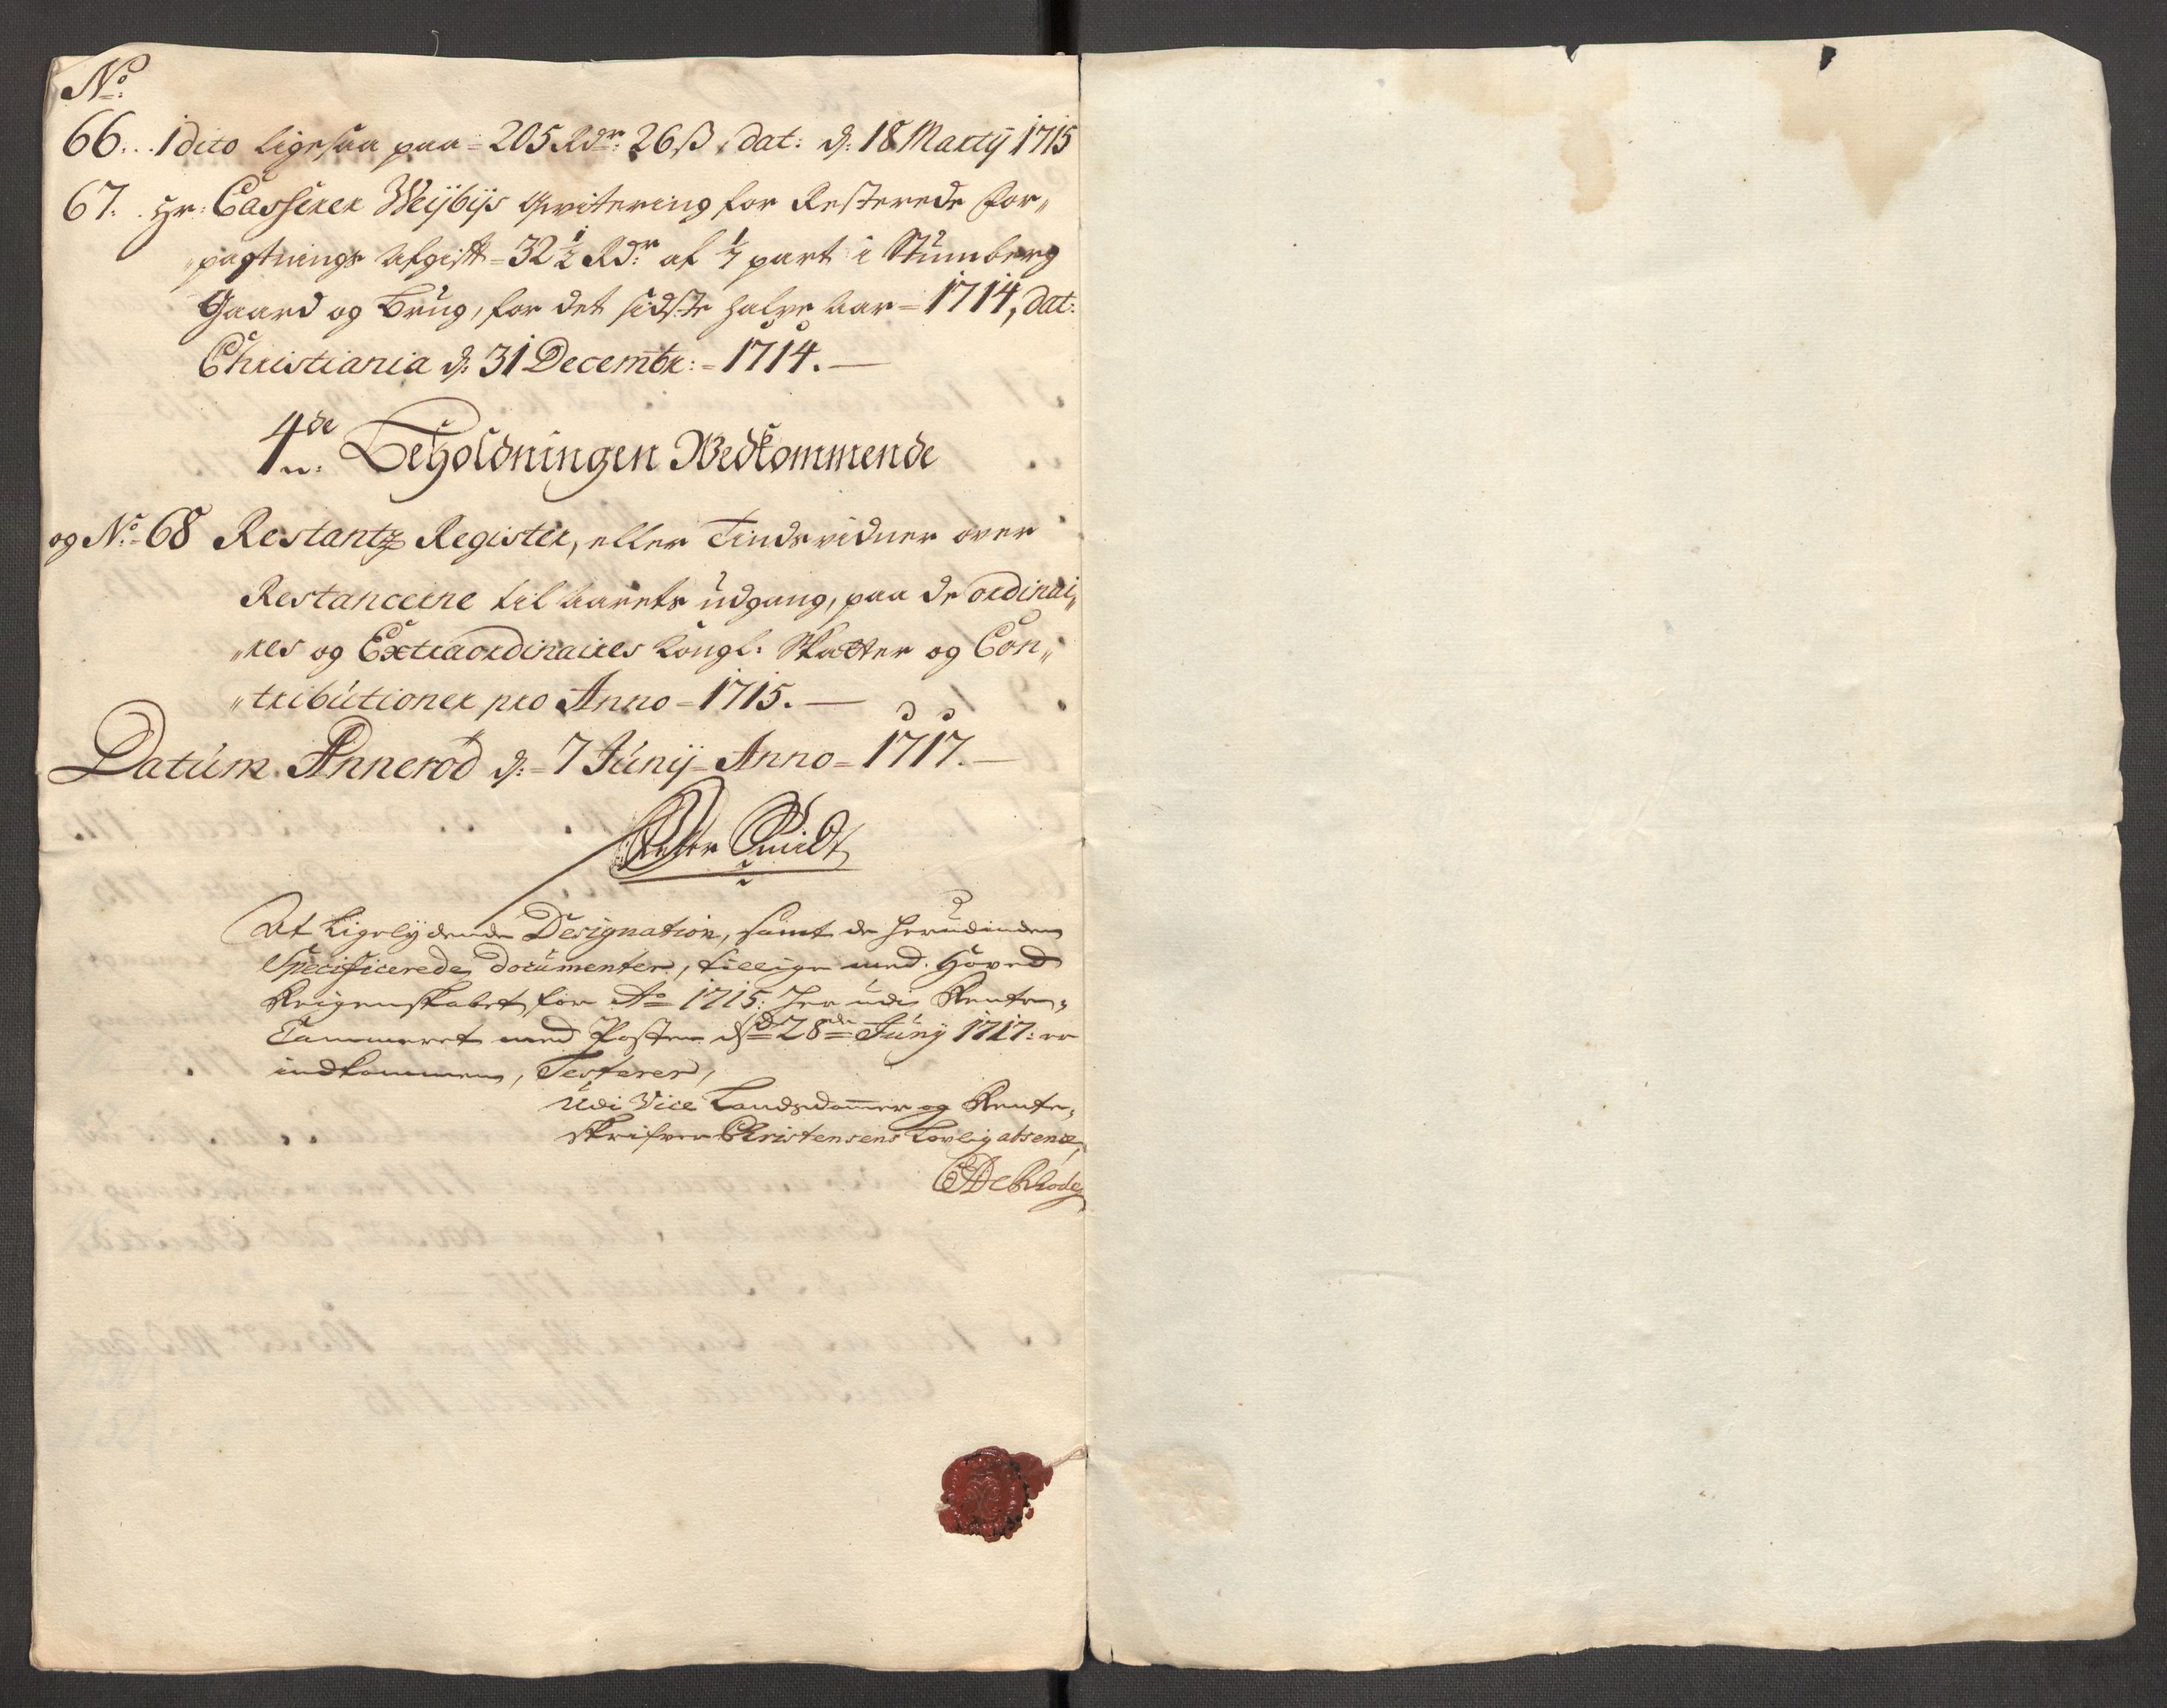 No
66. 1 dito ligesaa paa = 205 Rdr: 26 ß, dat: d: 18 Martij 1715
67. Hr: Casserer Weijbijs Qvitering for Resterede for„
„pagtnings Afgift = 32½ Rdr af 1/7 part i Stumberg
Gaard og Brug, for det sidste halve Aar = 1714, dat:
Christiania d: 31 Decembr: = 1714. —
4de Beholdningen Wedkommende
og No 68 Restantz Register, eller Tindsvidner over
Restancerne til Aarets udgang, paa de ordinai„
„res og Extraordinaires Kongl. Skatter og Con„
„tributioner pro Anno = 1715. —
Datum Annerød d: = 7 Junij = Anno = 1717. —
Peter Smidt
At Ligelydende Designation, samt de herudinden
Specificerede documenter, tillige med Hoved
Reigenskabet for Ao 1715: her udi Rente„
Cammeret med Posten dend 28de Junij 1717: er
indkommen, Testerer,
Udi Vice Landsdommer og Rente„
skrifver Christensens Lovlig absence,